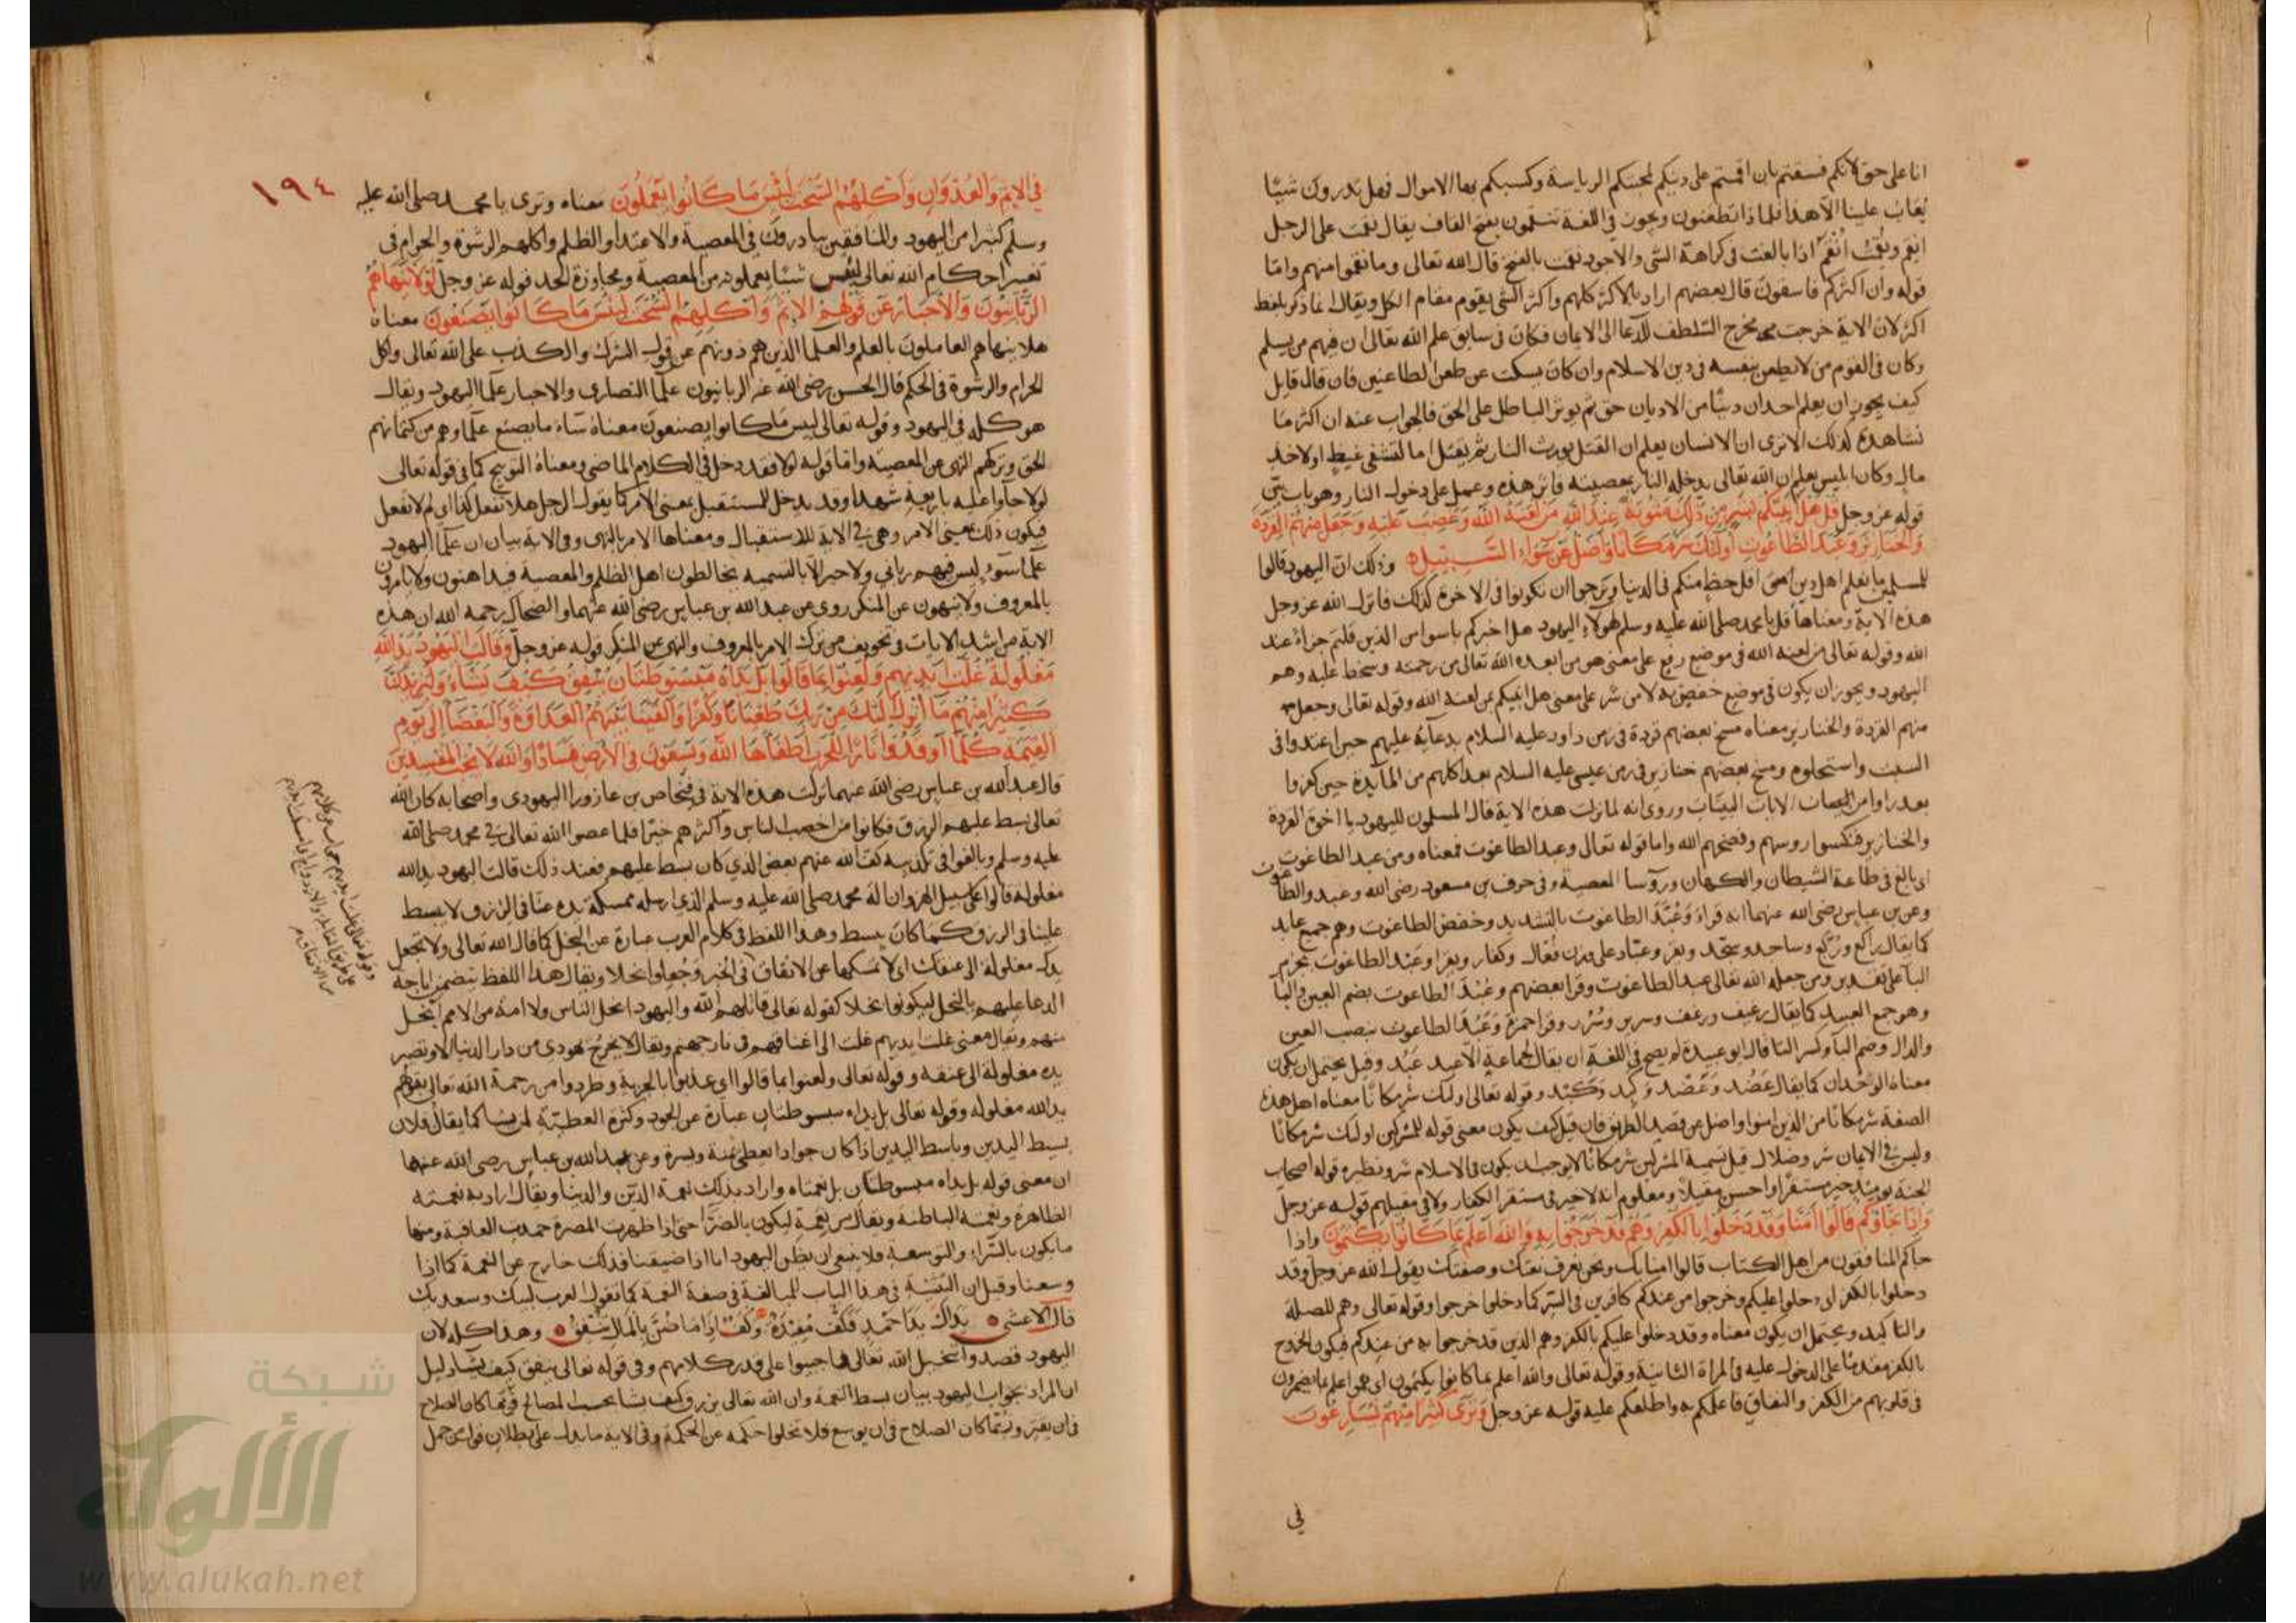 انا على حق لانكم فسقتم بان اقمتم على دينكم لمحبتكم الرياسة وكسبكم بها الاموال فهل تدرون شيئا
يُعاب علينا الا هذا فلماذا تطعنون ويجوز في اللغة تنقمون بفتح القاف يقال نقمت على الرجل
انقم ونقمت أنقم اذا بالغت في كراهة الشي والاجود نقمت بالفتح قال الله تعالى وما نقموا منهم واما
قوله وان اكثركم فاسقون قال بعضهم اراد بالاكثر كلهم واكثر الشي يقوم مقام الكل ويقال انما ذكر بلفظ
اكثر لان الاية خرجت مخرج التلطف للدعا الى الايمان فكان في سابق علم الله تعالى ان فيهم من يسلم
وكان في القوم من لا يطعن بنفسه في دين الاسلام وان كان يسكت عن طعن الطاعنين فان قال قايل
كيف يجوز ان يعلم احد ان دينًا من الاديان حق ثم يوثر الباطل على الحق فالجواب عنه ان اكثر ما
نشاهده كذلك الا ترى ان الانسان يعلم ان القتل يورث النار ثم يقتل اما لتشفي غيظ او لاخذ
مال وكان ابليس يعلم ان الله تعالى يدخله النار بمعصيته فاثر هذه وعمل على دخول النار وهو باب بيّن
قوله عز وجل قل هل انبئكم بشر من ذلك مثوبة عند الله من لعنه الله وغضب عليه وجعل منهم القردة
والخنازير وعبد الطاغوت اولئك شر مكانا واضل عن سواء السبيل وذلك ان اليهود قالوا
للمسلمين ما نعلم اهل دين اقل حظا منكم في الدنيا ونرجوا ان تكونوا في الاخرة كذلك فانزل الله عز وجل
هذه الاية ومعناها قل يا محمد صلى الله عليه وسلم لهولاء اليهود هل اخبركم باسوا من الذين قلتم جزاءً عند
الله وقوله تعالى من لعنه الله في موضع رفع على معنى هو من ابعده الله تعالى من رحمته وسخط عليه وهم
اليهود ويجوز ان يكون في موضع خفض بدلا من شر على معنى هل انبيكم بمن لعنه الله وقوله تعالى وجعل
منهم القردة والخنازير معناه مسخ بعضهم قردة في زمن داود عليه السلام بدعائه عليهم حين اعتدوا في
السبت واستحلوه ومسخ بعضهم خنازير في زمن عيسى عليه السلام بعد اكلهم من المائدة حين كفروا
بعد ما راوا من الايات البينات وروى انه لما نزلت هذه الاية قال المسلمون لليهود يا اخوة القردة
والخنازير فنكسوا روسهم وفضحهم الله واما قوله تعالى وعبد الطاغوت فمعناه ومن عبد الطاغوت
اي بالغ في طاعة الشيطان والكهان وروسا المعصية وفي حرف بن مسعود رضي الله وعبدوا الطاغوت
وعن بن عباس رضي الله عنهما انه قراء وَعُبَّدَ الطاغوت بالتشديد وخفض الطاغوت وهم جميع عابد
كما يقال راكع ورُكَّع وساجد وسجّد وعبّاد على وزن فُعّال وكفار وعبد الطاغوت بجزم
البا على تقدير ومن جعله الله تعالى عبد الطاغوت وقرا بعضهم وعُبُدَ الطاغوت بضم العين والبا
وهو جمع العبيد كما يقال رغيف ورغف وسرير وسُرُر وقرا حمزة وَعَبُدَ الطاغوت بنصب العين
والدال وضم البا وكسر التا قال ابو عبيدة لم يصح في اللغة ان يقال لجماعة الاعبد عَبُد وقيل يحتمل ان يكون
معناه الوحدان كما يقال عَضُد وعَضْد وقوله تعالى اولئك شر مكانا معناه اهل هذه
الصفة شر مكانا من الذين امنوا واضل عن قصد الطريق فان قيل كيف يكون معنى قوله للمشركين اولئك شر مكانا
وليس في الايمان شر وضلال قيل تسمية المشركين شر مكانا لا يوجب ان يكون في الاسلام شر ونظيره قوله اصحاب
الجنة يوميذ خير مستقرا واحسن مقيلا ومعلوم انه لا خير في مستقر الكفار ولا في مقيلهم قوله عز وجل
وَإِذَا جَاؤُكُم قَالُوا آمَنَّا وَقَد دَخَلُوا بِالكُفرِ وَهُم قَد خَرَجُوا بِهِ وَاللَّهُ أَعلَمُ بِمَا كَانُوا يَكتُمُونَ واذا
جاكم المنافقون من اهل الكتاب قالوا امنا بك ونحن نعرف نعتك وصفتك يقول الله عز وجل وقد
دخلوا بالكفر اي دخلوا عليكم وخرجوا من عندكم كافرين في السر كما دخلوا خرجوا وقوله تعالى وهم للصلة
والتاكيد ويحتمل ان يكون معناه وقد دخلوا عليكم بالكفر وهم الذين قد خرجوا به من عندكم فيكون الخروج
بالكفر مقدما على الدخول عليه في المراة الثانية وقوله تعالى والله اعلم بما كانوا يكتمون اي هو اعلم بما يضمرون
في قلوبهم من الكفر والنفاق فاعلمكم به واطلعكم عليه قوله عز وجل وَتَرَى كَثِيرًا مِنهُم يُسَارِعُونَ
في
١٩٤
في الاثم والعدوان واكلهم السحت لبئس ما كانوا يعملون معناه وترى يا محمد صلى الله عليه
وسلم كثيرا من اليهود والمنافقين يبادرون في المعصية والاعتدا والظلم واكلهم الرشوة والحرام في
تغيير احكام الله تعالى لبئس شيئا يعملونه من المعصية ومجاوزة الحد قوله عز وجل لولا ينهاهم
الربانيون والاحبار عن قولهم الاثم واكلهم السحت لبئس ما كانوا يصنعون معناه
هلا ينهاهم العاملون بالعلم والعلما الذين هم دونهم عن قول الشرك والكذب على الله تعالى واكل
الحرام والرشوة في الحكم قال الحسن رضي الله عنه الربانيون علما النصارى والاحبار علما اليهود ويقال
هو كله في اليهود وقوله تعالى لبيس ما كانوا يصنعون معناه ساء ما يصنع علماوهم من كتمانهم
الحق وتركهم النهى عن المعصية واما قوله لولا فقد دخل في الكلام الماضي ومعناه التوبيخ كما في قوله تعالى
لولا جاوا عليه باربعة شهدا وقد يدخل للمستقبل بمعنى الامر كما يقول الرجل هلا تفعل كذا اي لم لا تفعل
فيكون ذلك بمعنى الامر وهي في الاية للاستقبال ومعناها الامر بالنهى وفي الاية بيان ان علما اليهود
علما سوء ليس فيهم رباني ولا حبر الا بالتسمية يخالطون اهل الظلم والمعصية فيداهنون ولا يامرون
بالمعروف ولا ينهون عن المنكر روى عن عبد الله بن عباس رضي الله عنهما والضحاك رحمه الله ان هذه
الاية من اشد الايات وتخويف من ترك الامر بالمعروف والنهي عن المنكر قوله عز وجل وقالت اليهود يد الله
مغلولة غلت ايديهم ولعنوا بما قالوا بل يداه مبسوطتان ينفق كيف يشاء وليزيدن
كثيرا منهم ما انزل اليك من ربك طغيانا وكفرا والقينا بينهم العداوة والبغضا الى يوم
القيمة كلما اوقدوا نارا للحرب اطفاها الله ويسعون في الارض فسادا والله لا يحب المفسدين
قال عبد الله بن عباس رضي الله عنهما نزلت هذه الاية في فنحاص بن عازورا اليهودي واصحابه كان الله
تعالى بسط عليهم الرزق فكانوا من اخصب الناس واكثرهم خيرًا فلما عصوا الله تعالى في محمد صلى الله
عليه وسلم وبالغوا في تكذيبه كف الله عنهم بعض الذي كان بسط عليهم فعند ذلك قالت اليهود يد الله
مغلولة قالوا على سبيل الهزو ان اله محمد صلى الله عليه وسلم الذي ارسله ممسكة يده عنا في الرزق لا يبسط
علينا في الرزق كما كان يبسط وهذا اللفظ في كلام العرب عبارة عن البخل كما قال الله تعالى ولا تجعل
يدك مغلولة الى عنقك اي لا تمسكها عن الانفاق في الخير وجُعلوا بخلا ويقال هذا اللفظ يتضمن اباحة
الدعا عليهم بالبخل ليكونوا بخلا كقوله تعالى قاتلهم الله واليهود ابخل الناس ولا امة من الامم ابخل
منهم ويقال معنى غلت ايديهم غلت الى اعناقهم في نار جهنم ويقال لا يخرج يهودي من دار الدنيا الا وتصير
يده مغلولة الى عنقه وقوله تعالى ولعنوا بما قالوا اي عذبوا بالجزية وطردوا من رحمة الله تعالى بقولهم
يد الله مغلوله وقوله تعالى بل يداه مبسوطتان عبارة عن الجود وكثرة العطية لمن يشا كما يقال فلان
بسيط اليدين وباسط اليدين اذا كان جوادا يعطى يمنة ويسرة وعن عبد الله بن عباس رضي الله عنهما
ان معنى قوله بل يداه مبسوطتان بل نعمتاه واراد بذلك نعمة الدين والدنيا ويقال اراد به نعمته
الظاهرة ونعمته الباطنة ويقال من نعمة ليكون بالضرا حتى اذا ظهرت المضرة حمدت العاقبة ومنها
ما يكون بالسراء والتوسعة فلا ينبغي ان يظن اليهود انا اذا ضيقنا فذلك خارج عن النعمة كما اذا
وسعنا وقيل ان التثنية في هذا الباب للمبالغة في صفة النعمة كما تقول العرب لبيك وسعديك
قال الاعشى يداك يدا مجد فكف مفيدة وكف اذا ما ضن بالمال تنفق وهذا كله لان
اليهود قصدوا تبخيل الله تعالى فاجيبوا على قدر كلامهم وفي قوله تعالى ينفق كيف يشا دليل
ان المراد بجواب اليهود بيان بسط النعمة وان الله تعالى يرزق كيف يشا بحسب المصالح فربما كان الصلاح
في ان يقتر وربما كان الصلاح في ان يوسع فلا تخلوا حكمه عن الحكمة وفي الاية ما يدل على بطلان قول من حمل
شبكة
الألوكة
www.alukah.net